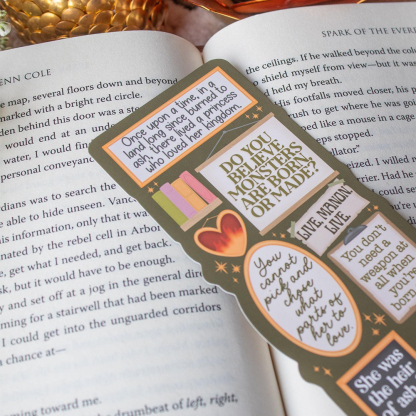 ENN COLE
e map, several floors down and beyond
marked with a bright red circle.
dden behind this door was a ste
would end at an unde
water, I would find
personal conveyanc
rdians was at the sear
e able to hide unseen. Vanc
his information, only that it wa
nated by the rebel cell in Arbo
e, get what I needed, and get back.
sk, but it would have to be enough.
y and set off at a jog in the general dire
ming for a stairwell that had been marked
I could get into the unguarded corridors
a chance at—
oming toward me.
the drumbeat of left, right,
SPARK OF THE EVER
the ceilings. If he walked beyond the co
o shield myself from view—but it wa
nd held my breath.
His footfalls moved closer, his p
rush to get where he was go
ped like a mouse in a cage
teps stopped.
Once upon a time, in a
land long since burned to
ash, there lived a princess
who loved her kingdom.
DO YOU
BELIEVE
MONSTERS
ARE BORN,
OR MADE?
LIVE, MANON!
LIVE.
You don't
need a
weapon at
all when
you're
born
You cannot
pick and
chose
what
parts of
her to
love.
She was
the heir
of as